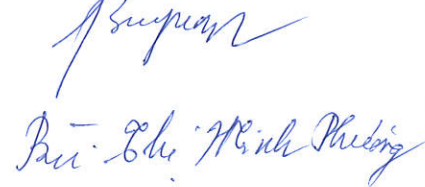 Bùi Thị Minh Phương